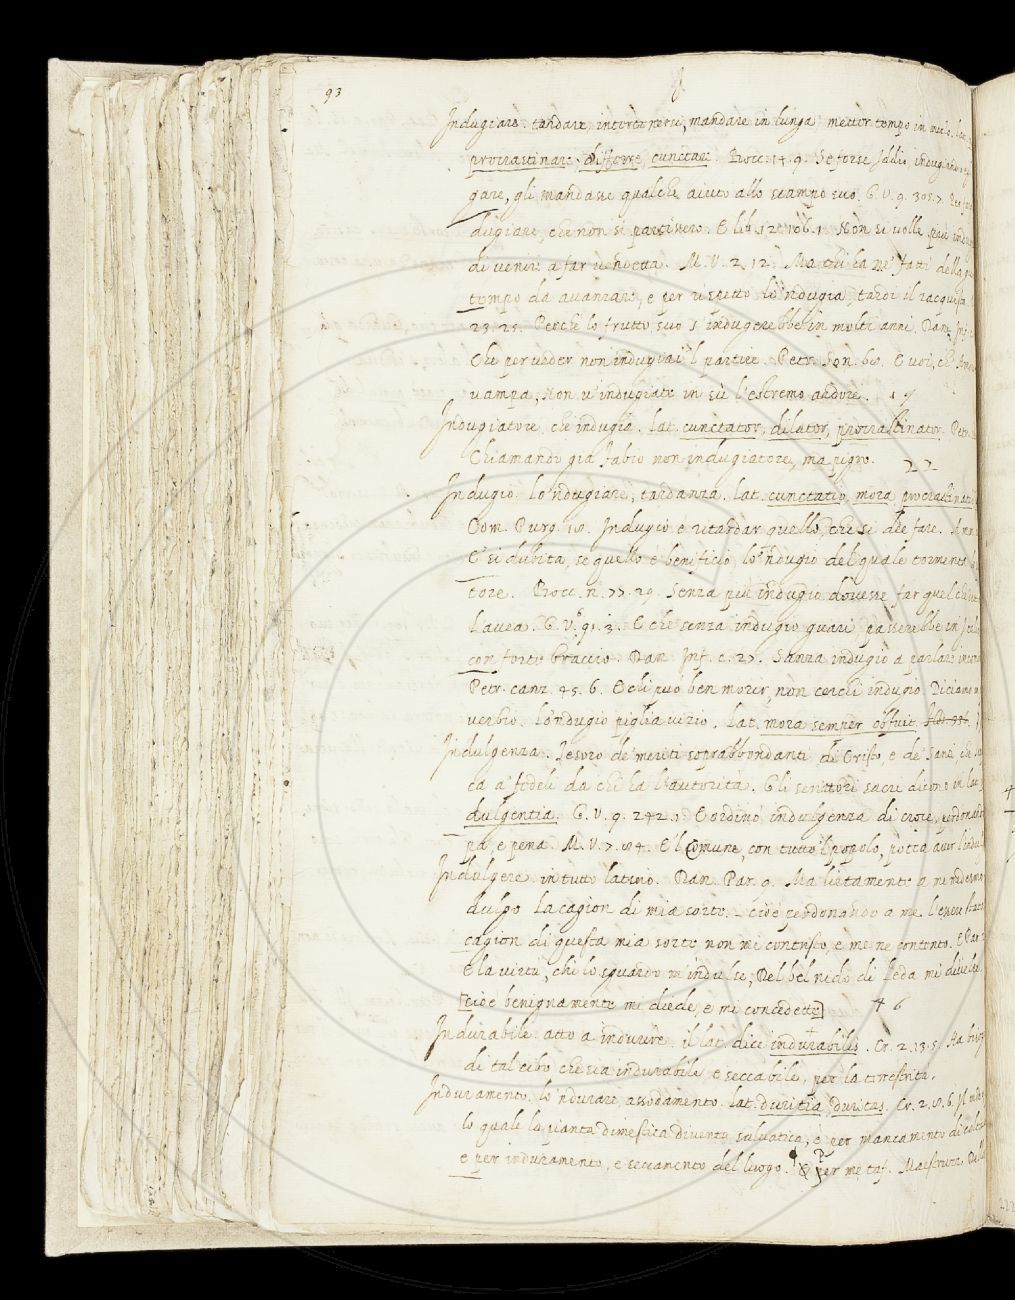 93
J
Indugiare. tardare, intertenersi, mandare in lunga metter tempo in mezo. lat.
procrastinare, differre, cunctari. Bocc. 14. 9. Se forse Iddio, indugiando
gare, gli mandasse qualche aiuto allo scampo suo. G. V. 9. 305. 7.
dugiare, che non si partissero. E lib. 12. 106. 1. Non si volle più
di venire a far vendetta. M. V. 2. 12. Ma chi ha ne' fatti della
tempo da avanzare, e per rispetto lo 'ndugia, tardi il racquista
23. 25. Perchè lo frutto suo s' indugerebbe in molti anni. Dan. Inf.
Che per veder non indugiai 'l partire. Petr. Son. 60. E voi, ch' Amore
vampa, Non v' indugiate in sù l' estremo ardore. 19
Indugiatore, che indugia. lat. cunctator, dilator, procrastinator. Petr.
Chiamando già Fabio non indugiatore, ma pigro. 22
Indugio. lo 'ndugiare, tardanza. lat. cunctatio, mora, procrastinatio
Com. Purg. 10. Indugio è ritardar quello, che si dee fare.
E' si dubita, se quello è beneficio, lo 'ndugio del quale tormenta
tore. Bocc. n. 77. 29. Senza più indugio dovesse far quel che
l' avea. G. V. 91. 3. E che senza indugio guari passerebbe in
con forte braccio. Dan. Inf. c. 27. Sanza indugio a parlare
Petr. canz. 45. 6. E chi può ben morir, non cerchi indugio. Diciamo
verbio. Lo 'ndugio piglia vizio. Lat. mora semper obfuit.
Indulgenza. Tesoro de' meriti soprabbondanti di Cristo, e de' Santi
ca a' fedeli da chi ha l' autorità. Gli scrittori sacri dicono in lat.
dulgentia. G. V. 9. 242. 1. E ordinò indulgenza di croce,
pa, e pena. M. V. 7. 84. E 'l Comune, con tutto 'l popolo, potea aver
Indulgere. in tutto latino. Dan. Par. 9. Ma lietamente a me medesma
dulgo La cagion di mia sorte. cioè perdonando a me l' essere
cagion di questa mia sorte non mi contristo, e me ne contento.
E la virtù, che lo sguardo m' indulse, Del bel nido di Leda mi divelse
[cioè benignamente mi diede, e mi concedette] 46
Indurabile. atto a indurire. il lat. dice indurabilis. Cr. 2. 13. 5.
di tal cibo che sia indurabile e seccabile, per la terrestrità.
Induramento. lo 'ndurare, assodamento. lat. duritia, duritas. Cr. 2. 8. 6.
lo quale la pianta dimestica diventa salvatica, è per mancamento di
e per induramento, e seccamento del luogo. E per metaf. Maestruzz.